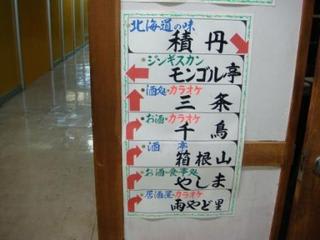 北海道の味
積丹
・ジンギスカン
モンゴル亭
・酒処・カラオケ
三条
・お酒・カラオケ
千鳥
・酒亭
箱根山
・お酒・食事処
やしま
・居酒屋・カラオケ
雨やど里